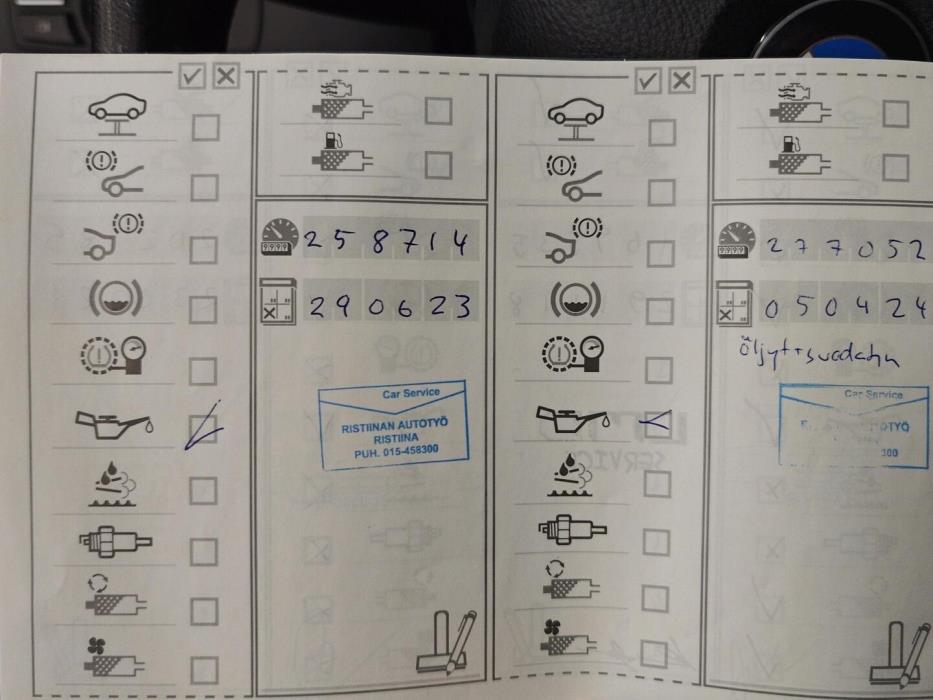 258714
290623
Car Service
RISTIINAN AUTOTYÖ
RISTIINA
PUH. 015-458300
277052
050424
Öljyt+suodatin
Car Service
OTYÖ
300